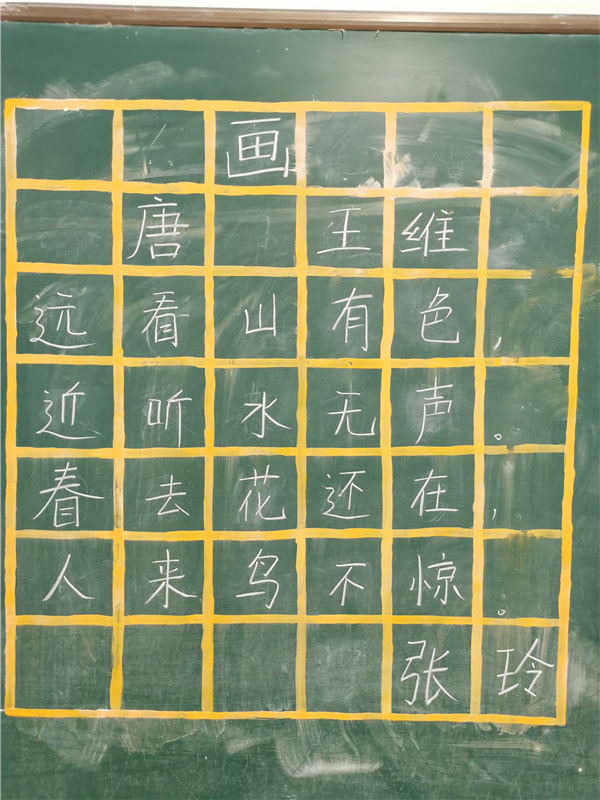 画
唐 王维
远看山有色，
近听水无声。
春去花还在，
人来鸟不惊。
张玲